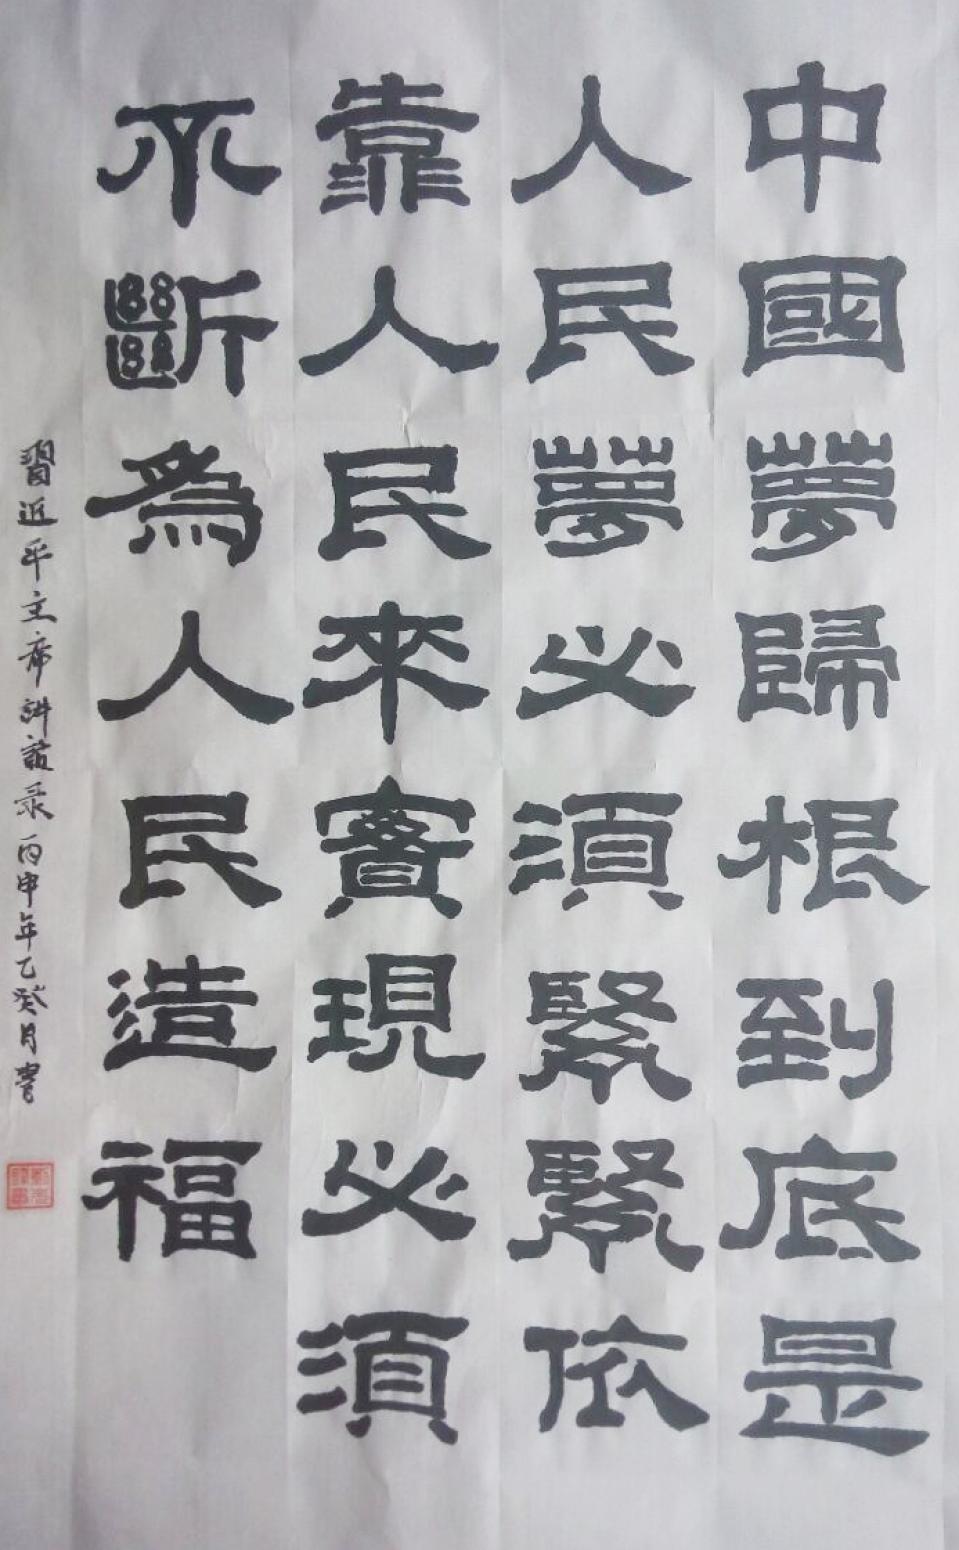 中國夢歸根到底是
人民夢必須緊緊依
靠人民來實現必須
不斷為人民造福
習近平主席讲話录丙申年乙癸月書